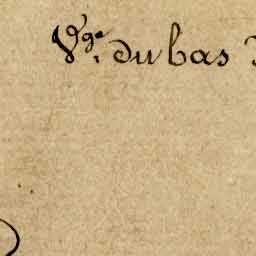 Vge. du bas